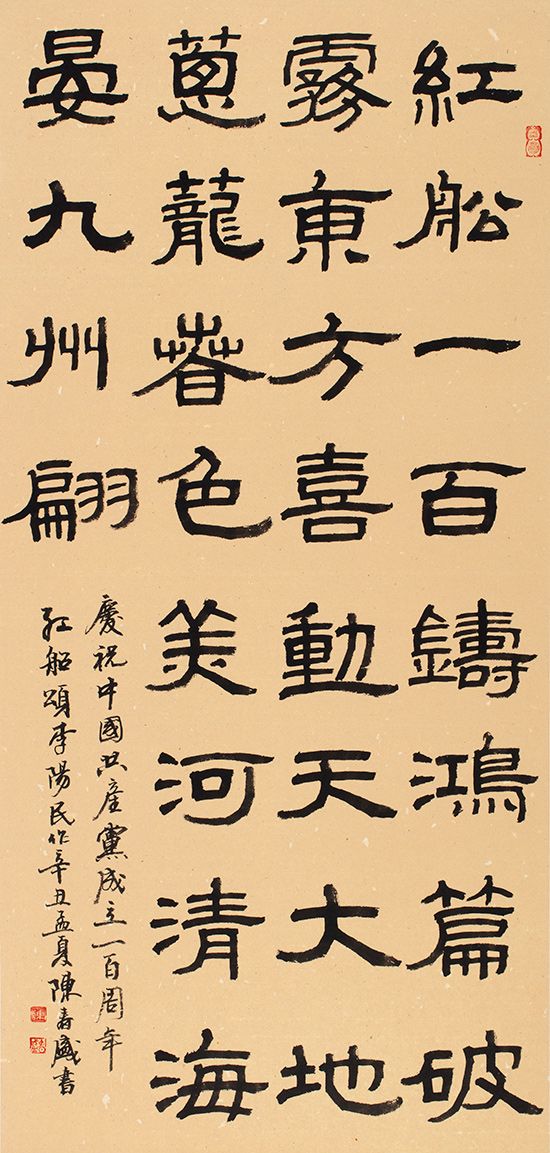 紅船一百鑄鴻篇破
霧東方喜動天大地
蔥蘢春色美河清海
晏九州翩
慶祝中國共產黨成立一百周年
紅船頌李陽民作辛丑孟夏陳寿盛書